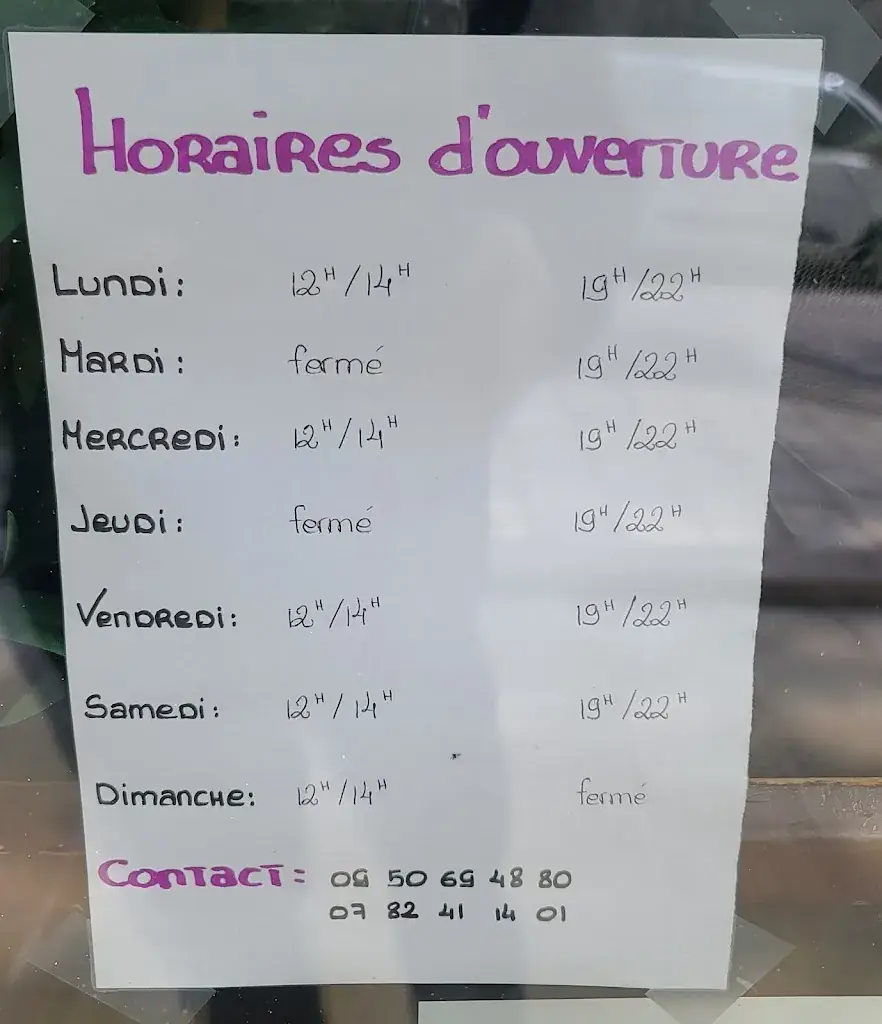 Horaires d'ouverture
Lundi: 12H/14H 19H/22H
Mardi: fermé 19H/22H
Mercredi: 12H/14H 19H/22H
Jeudi: fermé 19H/22H
Vendredi: 12H/14H 19H/22H
Samedi: 12H/14H 19H/22H
Dimanche: 12H/14H fermé
Contact: 09 50 69 48 80
07 82 41 14 01